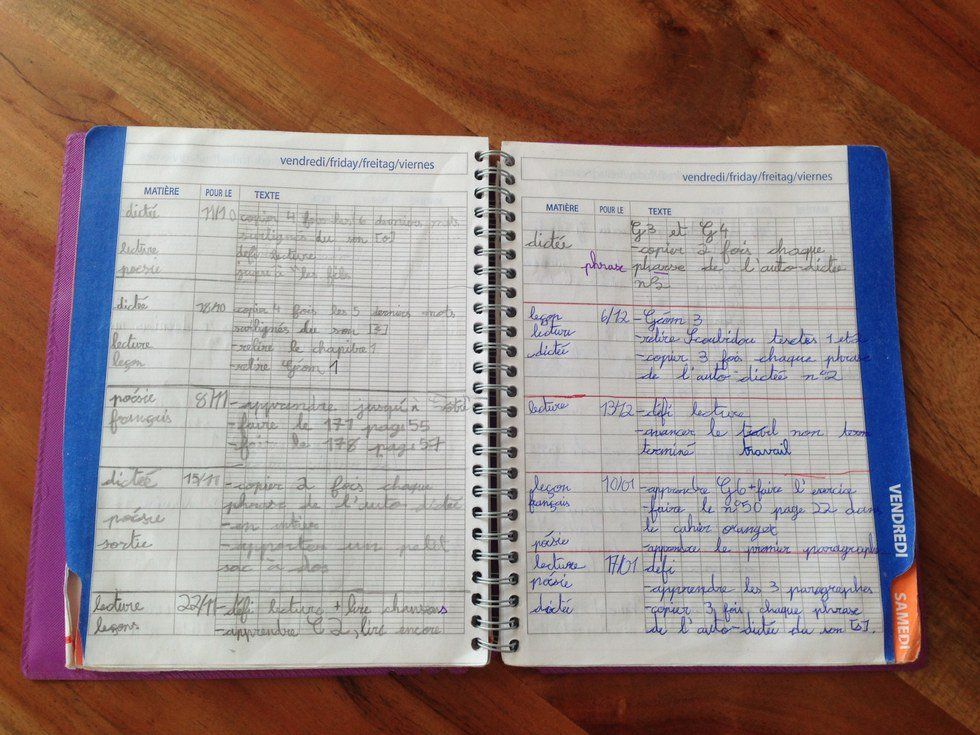 vendredi/friday/freitag/viernes
MATIÈRE POUR LE TEXTE
dictée 11/10 -copier 4 fois les 6 derniers mots
surlignés du son [o]
lecture défi lecture
poésie
dictée 18/10 -copier 4 fois les 5 derniers mots
surlignés du son
lecture -relire le chapitre 1
leçon -relire Géom 1
poésie 8/11 -apprendre jusqu'à
français -faire le 171 page 55
le 178 page 57
dictée 15/11 -copier 2 fois chaque
phrase de l'auto dictée
poésie -en entier
sortie -apporter un petit
sac à dos
lecture 22/11 -défi lecture + lire chansons
leçons -apprendre C2, lire encore
vendredi/friday/freitag/viernes
MATIÈRE POUR LE TEXTE
G3 et G4
dictée -copier 2 fois chaque
phrase pharse de l'auto-dictée
n°3
leçon 6/12 -Géom 3
lecture -relire Scoubidou textes 1 et 2
dictée -copier 3 fois chaque phrase
de l'auto-dictée n°2
lecture 13/12 -défi lecture
-avancer le non term
terminé travail
leçon 10/01 -apprendre G6+faire l'exercice
français -faire le n°50 page 22 dans
le cahier oranger
poésie -apprendre le premier paragraphe
lecture 17/01 défi
poésie -apprendre les 3 paragraphes
dictée -copier 3 fois chaque phrase
de l'auto-dictée du son [s].
VENDREDI
SAMEDI